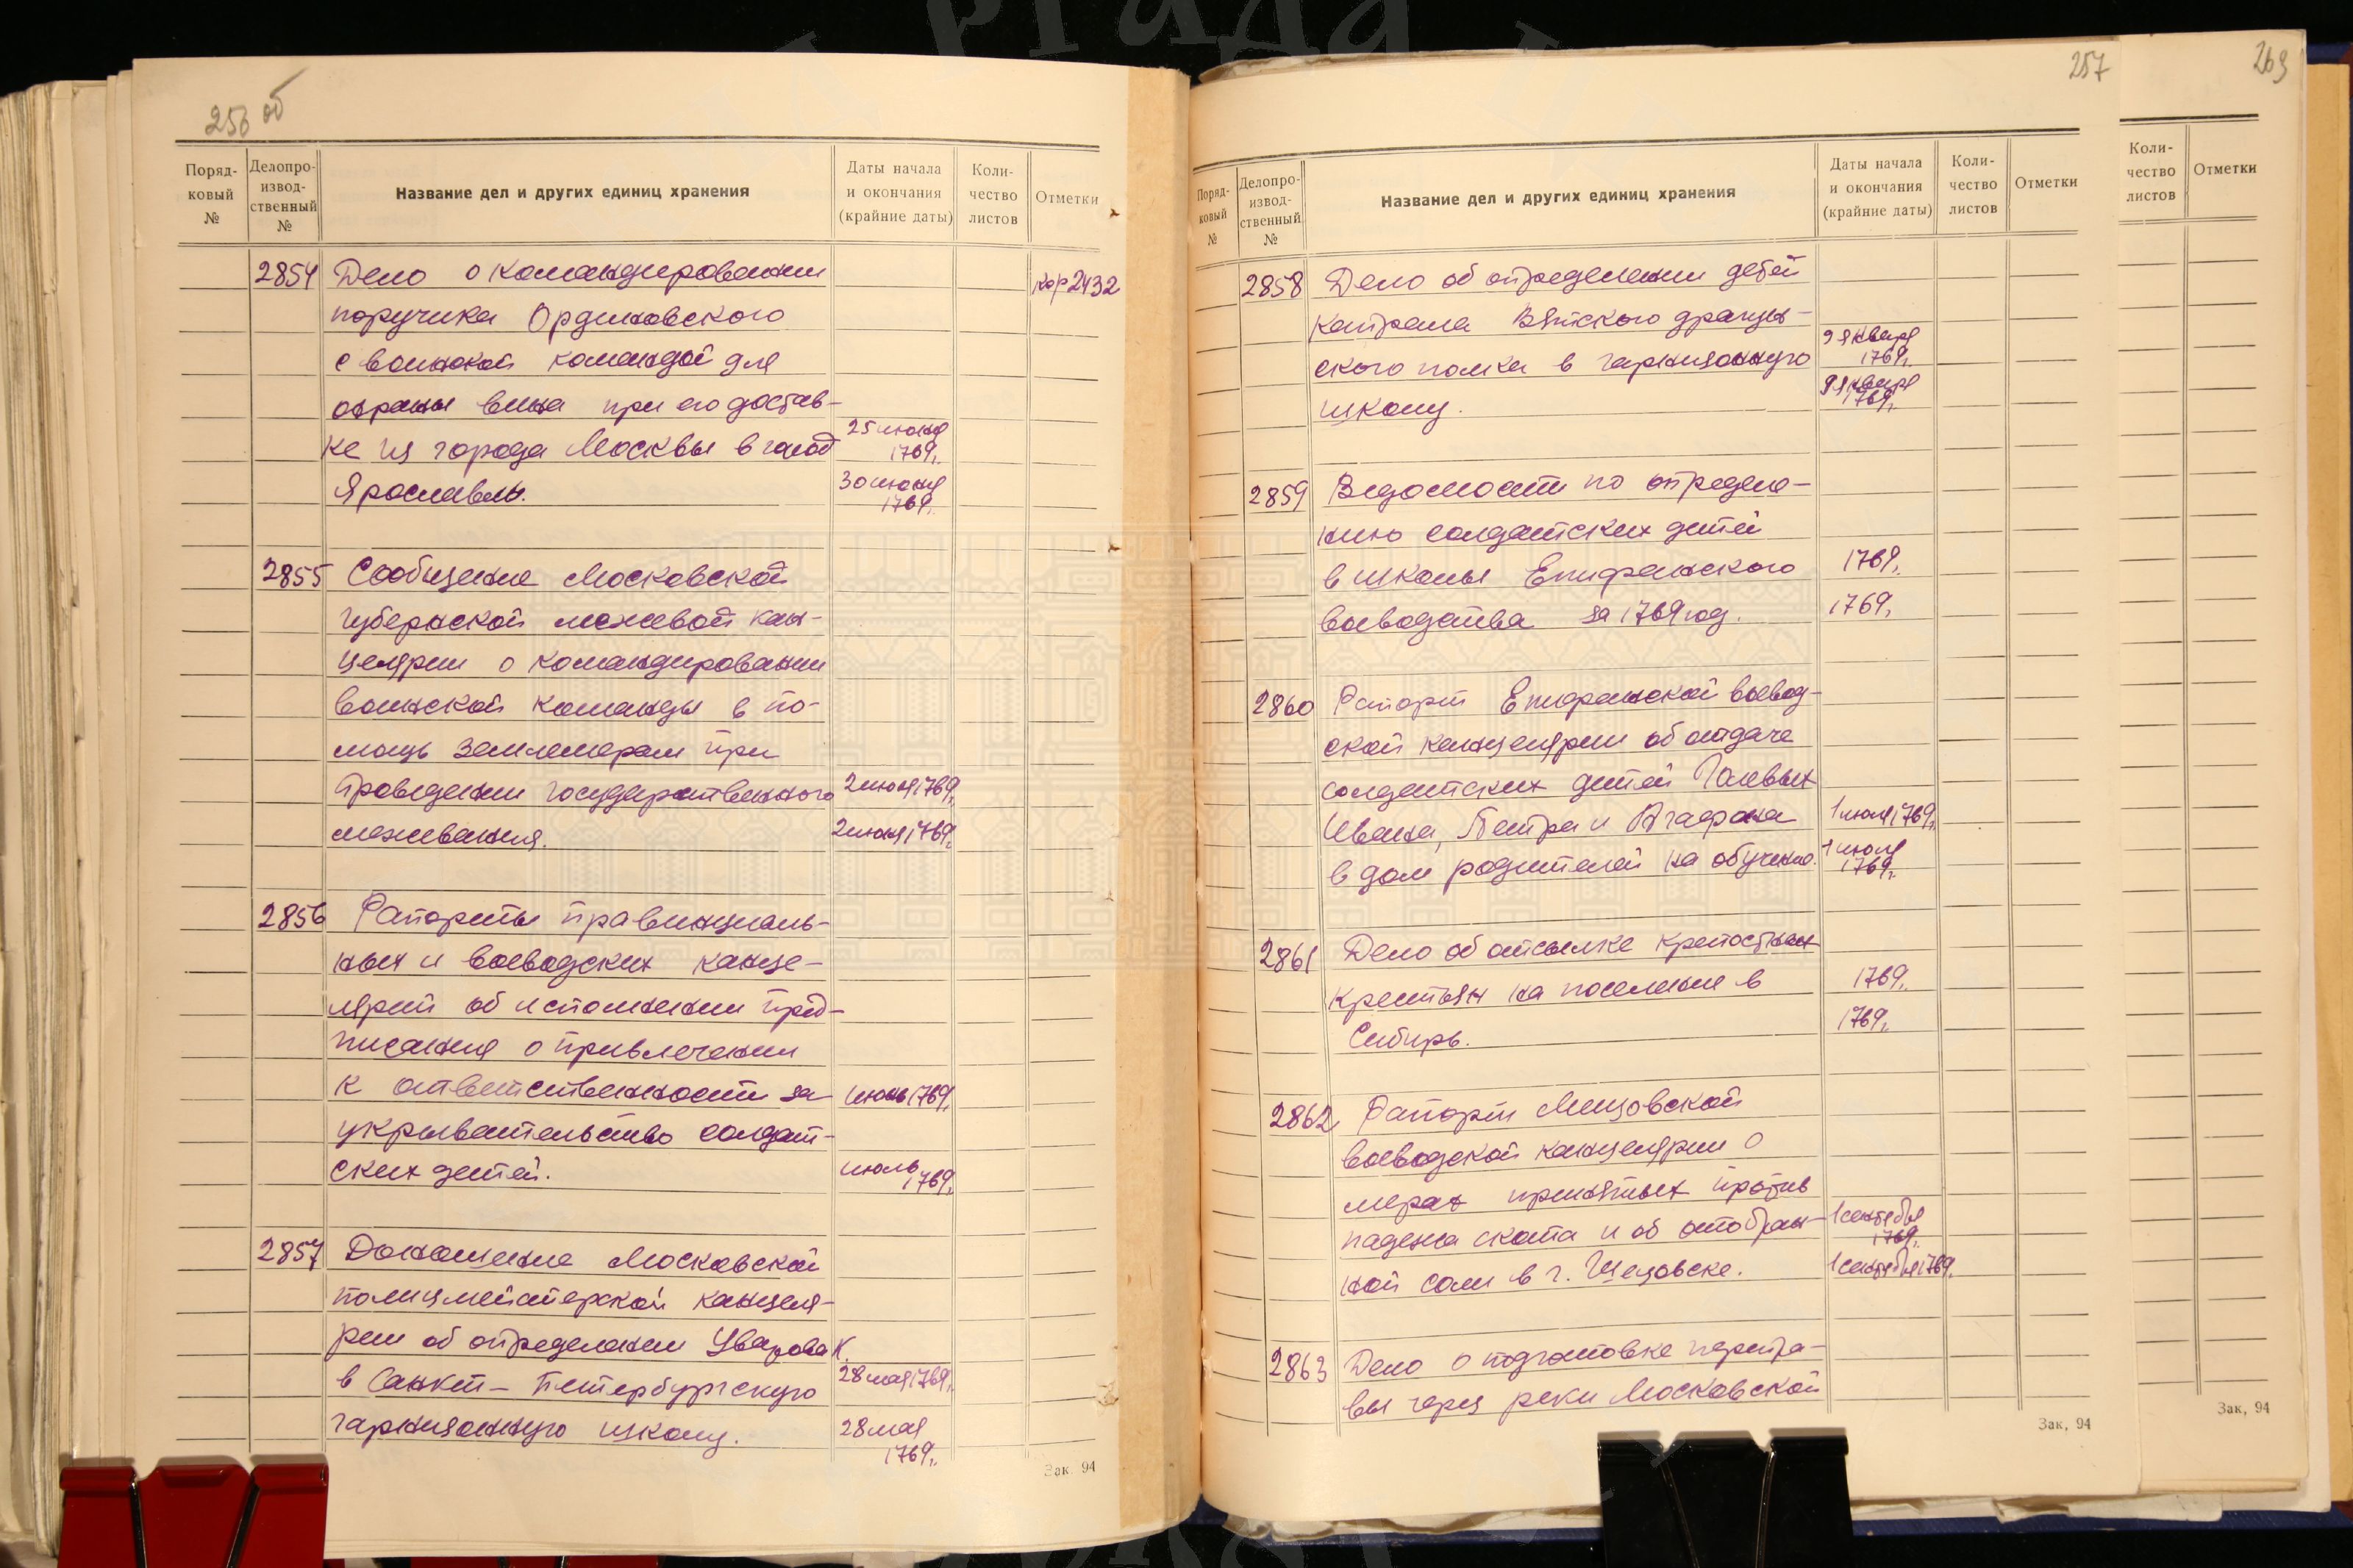 256 об
Поряд-
ковый
№
Делопро-
извод-
ственный
№
Название дел и других единиц хранения
Даты начала
и окончания
(крайние даты)
Коли-
чество
листов
Отметки
2854 Дело о командировании
кор 2432
поручика Ординовского
с воинской командой для
охраны вина при его достав-
ке из города Москвы в город
25 июня
1769г.
Ярославль.
30 июня
1769г.
2855 Сообщение Московской
губернской межевой кан-
целярии о командировании
воинской команды в по-
мощь землемерам при
проведении государственного
2 июня 1769г.
межевания.
2 июня 1769г.
2856 Рапорты правинциаль-
ных и воеводских канце-
лярий об исполнении пред-
писания о привлечении
к ответственности за
июнь 1769г.
укрывательство солдат-
ских детей.
июль
1769г.
2857 Доношение Московской
полицмейстерской канцеля-
рии об определении Уварова К.
в Санкт-Петербургскую
28 мая 1769г.
гарнизонную школу.
28 мая
1769г.
Зак. 94
257
Поряд-
ковый
№
Делопро-
извод-
ственный
№
Название дел и других единиц хранения
Даты начала
и окончания
(крайние даты)
Коли-
чество
листов
Отметки
2858 Дело об определении детей
капрала Вятского драгун-
ского полка в гарнизонную
9 января
1769г.
школу.
9 января
1769г.
2859 Ведомости по определе-
нию солдатских детей
в школы Епифанского
1769г.
воеводства за 1769 год.
1769г.
2860 Рапорт Епифанской воевод-
ской канцелярии об отдаче
солдатских детей Голевых
Ивана, Петра и Агафона
1 июля 1769г.
в дом родителей на обучение.
1 июля
1769г.
2861 Дело об отсылке крепостных
крестьян на поселение в
1769г.
Сибирь.
1769г.
2862 Рапорт Мещовской
воеводской канцелярии о
мерах принятых против
падежа скота и об отобран-
1 сентября
1769г.
ной соли в г. Мещовске.
1 сентября 1769г.
2863 Дело о подготовке перепра-
вы через реки Московской
Зак. 94
269
Коли-
чество
листов
Отметки
Зак. 94